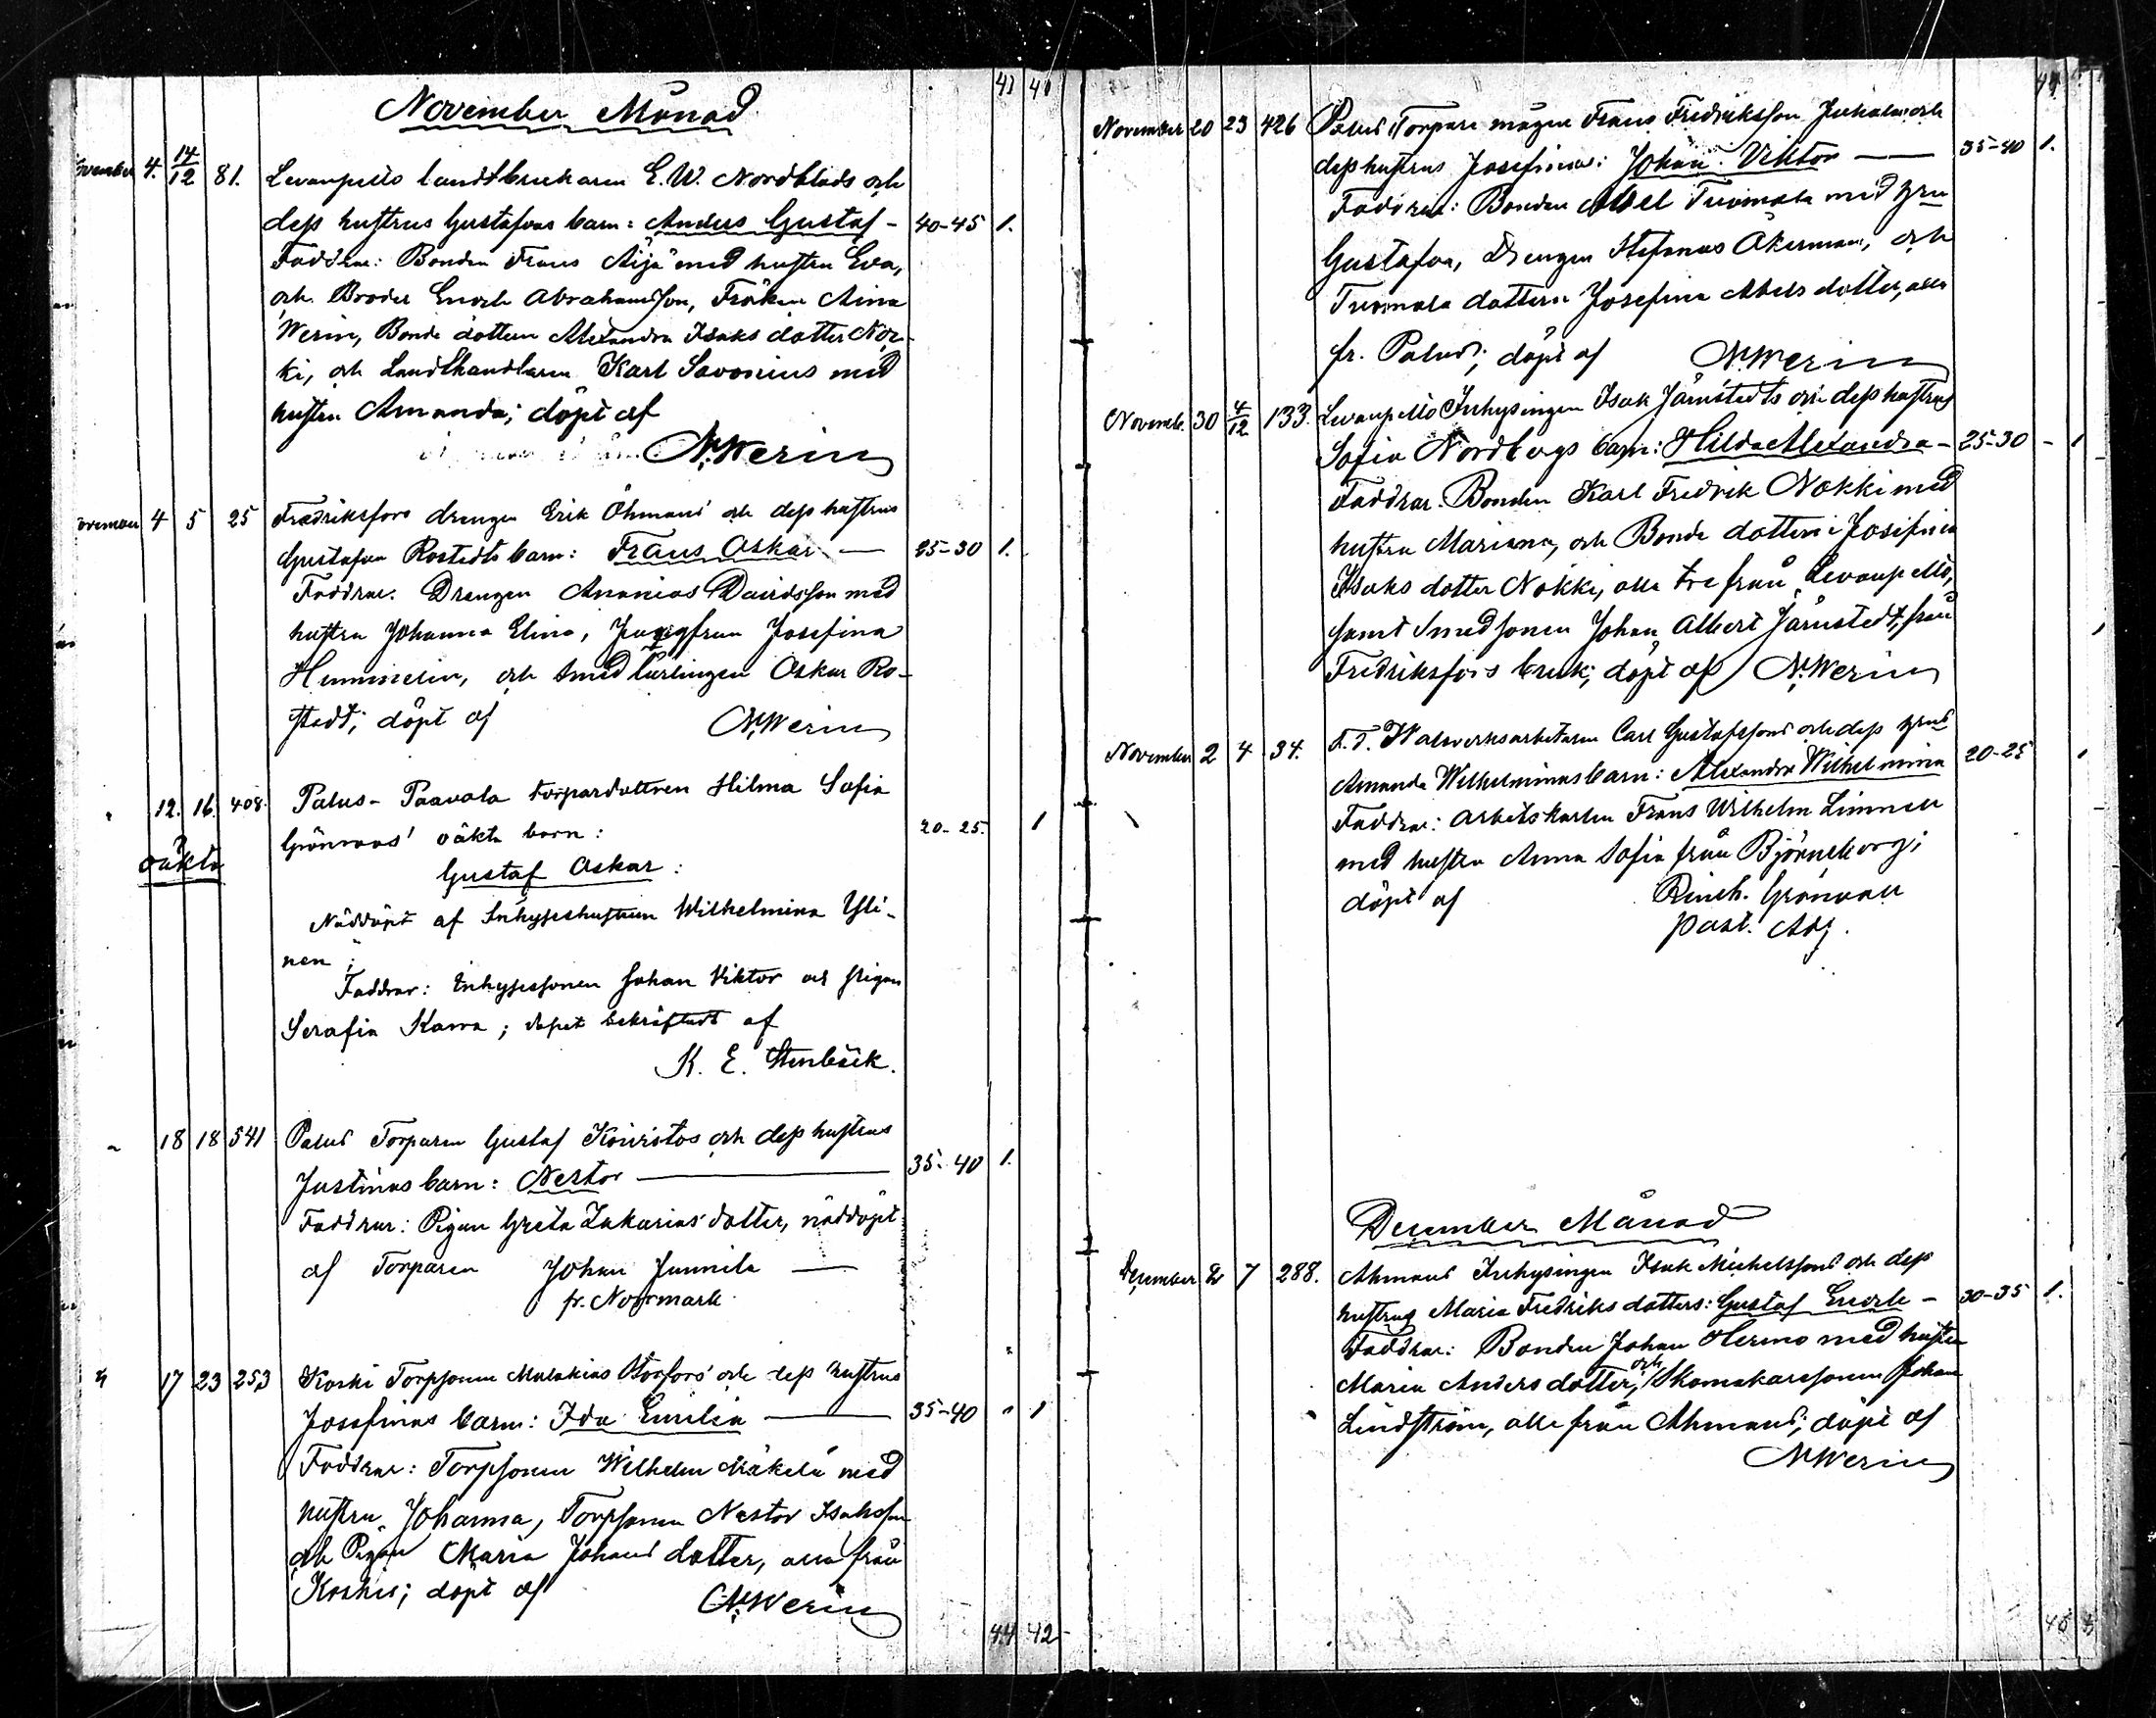 41 41
November Månad
November 4. 14/12 81. Levanpelto landtbrukaren E. W. Nordblads och
dess hustrus Gustafvas barn: Anders Gustaf - 40-45 1.
Faddrar: Bonden Frans Äijä med hustru Eva,
och Broder Enock Abrahamsson, Fröken Aina
Werin, Bonde dottern Alexandra Isaks dotter Nok-
ki, och Landthandlaren Karl Savonius med
hustru Amanda; döpt af
N. Werin
November 4 5 25 Fredriksfors drengen Erik Öhmans och dess hustrus
Gustafva Rostedts barn: Frans Oskar — 25-30 1.
Faddrar. Drengen Ananias Davidsson med
hustru Johanna Elina, Jungfrun Josefina
Hemminelin, och Smedlärlingen Oskar Ro-
stedt; döpt af N. Werin
" 12. 16. 408. Palus- Paavola torpardottren Hilma Sofia
Grönroos' oäkta barn: 20-25. 1
oäkta
Gustaf Oskar:
Nöddöpt af Inhyseshustrun Wilhelmina Yli-
nen;
Faddrar: Inhysessonen Johan Viktor och pigan
Serafia Karra; dopet bekräftadt af
K. E. Stenbäck.
" 18 18 541 Palus Torparen Gustaf Koivistos och dess hustrus
Justinas barn: Nestor — 35-40 1.
Faddrar: Pigan Greta Zakarias dotter, nöddöpt
af Torparen Johan Junnila —
fr. Norrmark
" 17 23 253 Koski Torpsonen Malakias Storfors' och dess hustrus
Josefinas barn: Ida Emilia — 35-40 " 1
Faddrar: Torpsonen Wilhelm Mäkelä med
hustru Johanna, Torpsonen Nestor Isaksson
och Pigan Maria Johans dotter, alla från
Koskis; döpt af N. Werin
44 42
44
November 20 23 426 Palus Torpare mågen Frans Fredriksson Juhalas och
dess hustrus Josefinas: Johan Viktor — 35-40 1.
Faddrar: Bonden Abel Tuomala med hru
Gustafva, Drengen Stefanus Åkerman, och
Tuomala dottern Josefina Abels dotter, alla
fr. Palus; döpt af N. Werin
Novemb. 30 4/12 133. Levanpelto Inhysingen Isak Järnstedts och dess hustrus
Sofia Nordbergs barn: Hilda Alexandra - 25-30 - 1
Faddrar. Bonden Karl Fredrik Nokki med
hustru Mariana, och Bonde dottern Josefina
Isaks dotter Nokki, alla tre från Levanpelto,
samt Smedsonen Johan Albert Järnstedt, från
Fredriksfors bruk; döpt af N. Werin
November 2 4 34. F. d. Walsverksarbetaren Carl Gustafssons och dess hrus
Amanda Wilhelminas barn: Alexandra Wilhelmina 20-25 1
Faddrar: arbetskarlen Frans Wilhelm Limnell
med hustru Anna Sofia från Björneborg;
döpt af Rinh. Grönvall
past. Adj.
December Månad
December 2 7 288. Ahmaus Inhysingen Isak Michelssons och dess
hustrus Maria Fredriks dotters: Gustaf Enock - 30-35 1.
Faddrar: Bonden Johan Hermo med hustru
Maria Anders dotter, och Skomakarsonen Johan
Lindström, alla från Ahmaus; döpt af
N. Werin